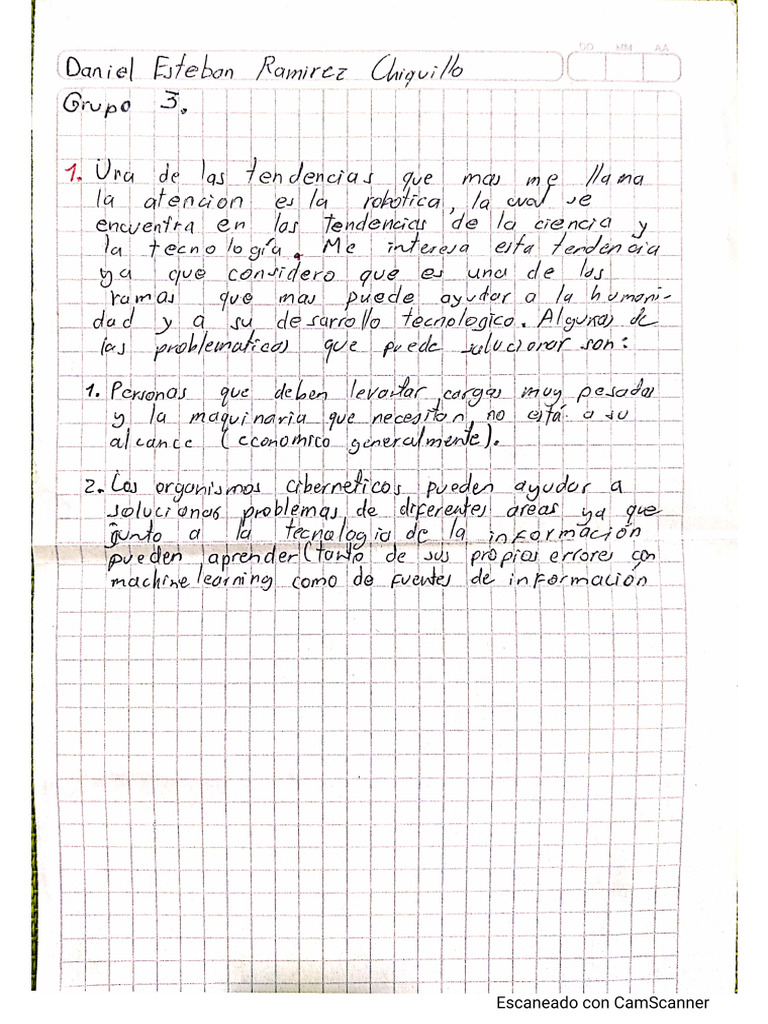 DD MM AA
Daniel Esteban Ramirez Chiquillo
Grupo 3.
1. Una de las tendencias que mas me llama
la atencion es la robotica, la cual se
encuentra en las tendencias de la ciencia y
la tecnología. Me interesa esta tendencia
ya que considero que es una de las
ramas que mas puede ayudar a la humani-
dad y a su desarrollo tecnologico. Algunas de
las problematicas que puede solucionar son:
1. Personas que deben levantar cargas muy pesadas
y la maquinaria que necesitan, no está a su
alcance (economico generalmente).
2. Los organismos ciberneticos pueden ayudar a
solucionar problemas de diferentes areas ya que
junto a la tecnologia de la información
pueden aprender (tanto de sus propios errores con
machine learning como de fuentes de información
Escaneado con CamScanner